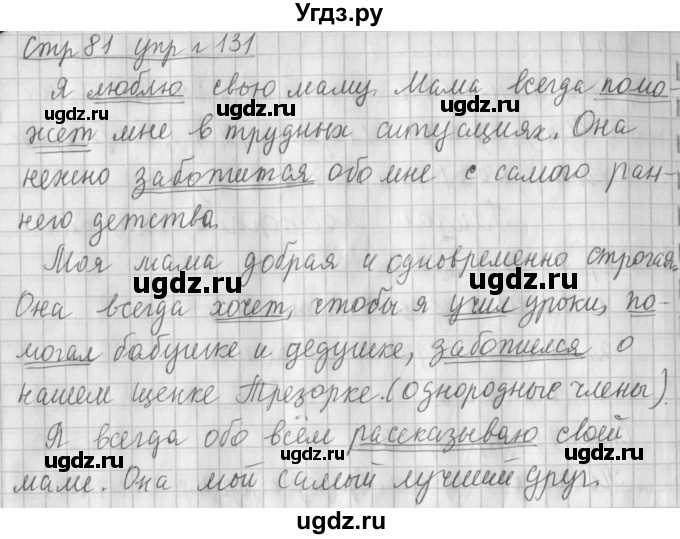 Угдз.ру
Стр 81 упр г 131
Я люблю свою маму. Мама всегда помо-
жет мне в трудных ситуациях. Она
нежно заботится обо мне с самого ран-
него детства.
Моя мама добрая и одновременно строгая.
Она всегда хочет, чтобы я учил уроки, по-
могал бабушке и дедушке, заботился о
нашем щенке Трезорке. (однородные члены).
Я всегда обо всём рассказываю своей
маме. Она мой самый лучший друг.
ugdz.ru ugdz.ru ugdz.ru
ugdz.ru ugdz.ru ugdz.ru
ugdz.ru ugdz.ru ugdz.ru
ugdz.ru ugdz.ru ugdz.ru
ugdz.ru ugdz.ru ugdz.ru
ugdz.ru